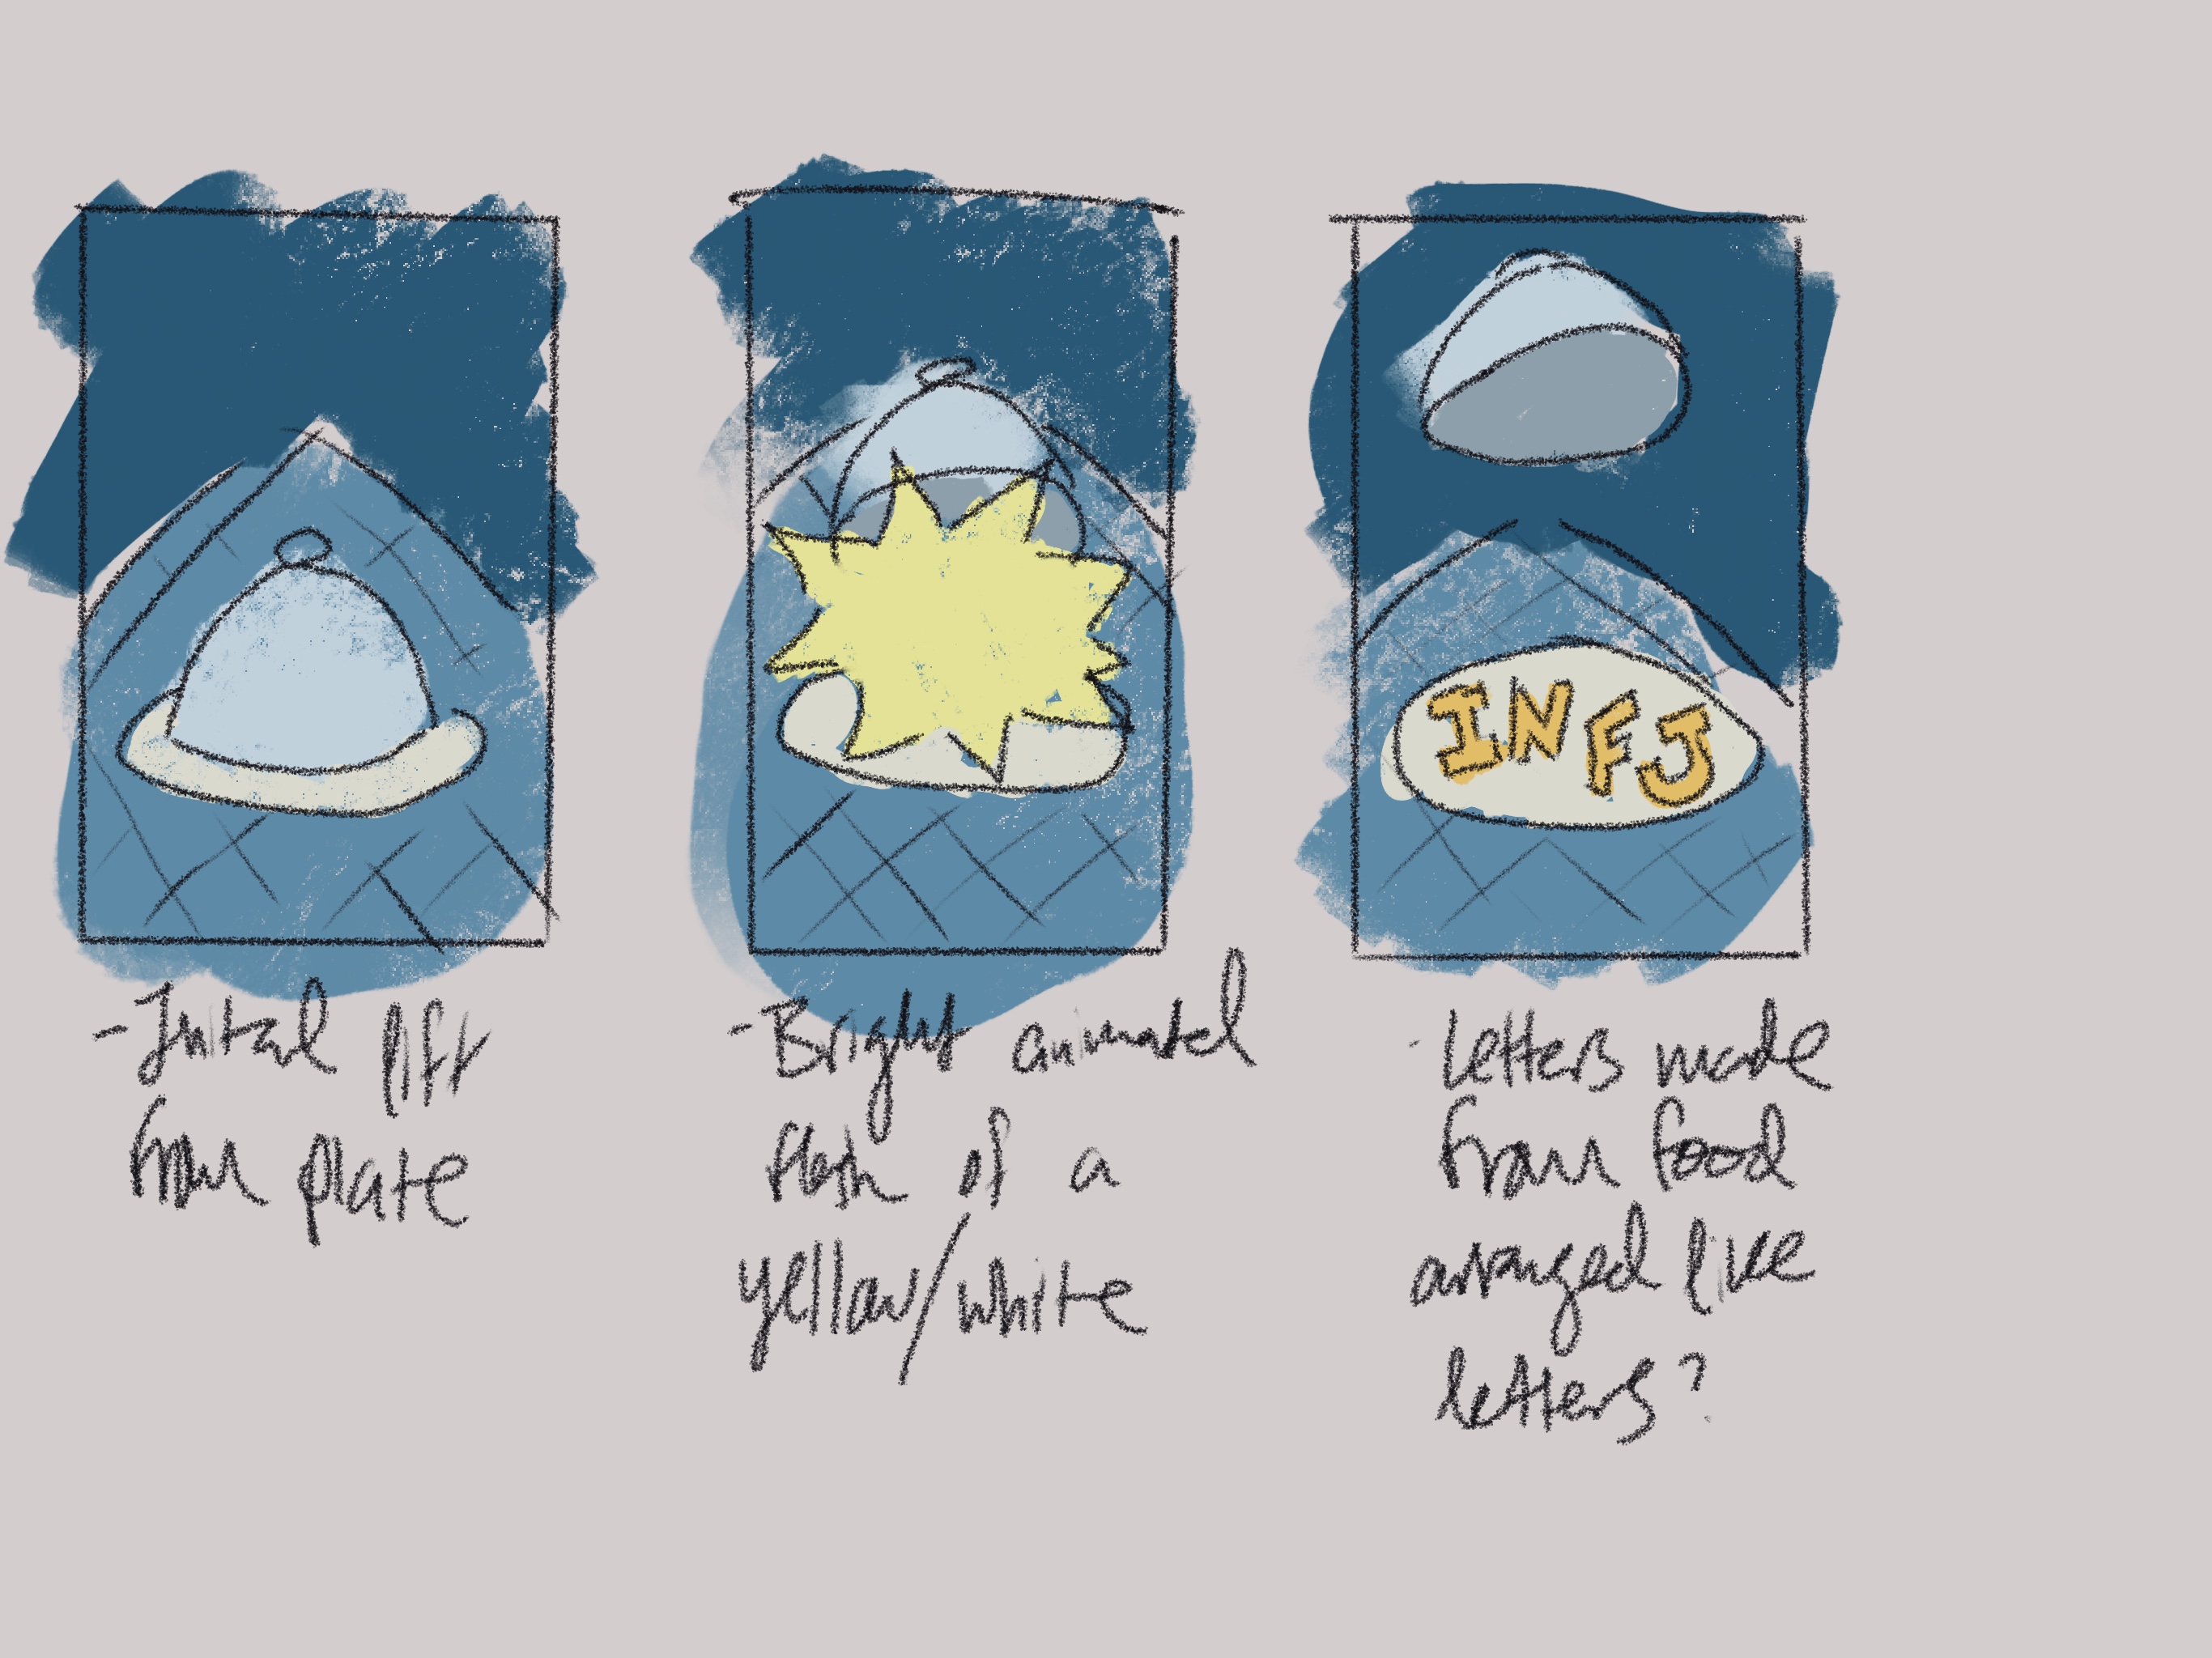 INFJ
- Initial lift
from plate
- Bright animated
flash of a
yellow/white
- Letters made
from food
arranged like
letters?